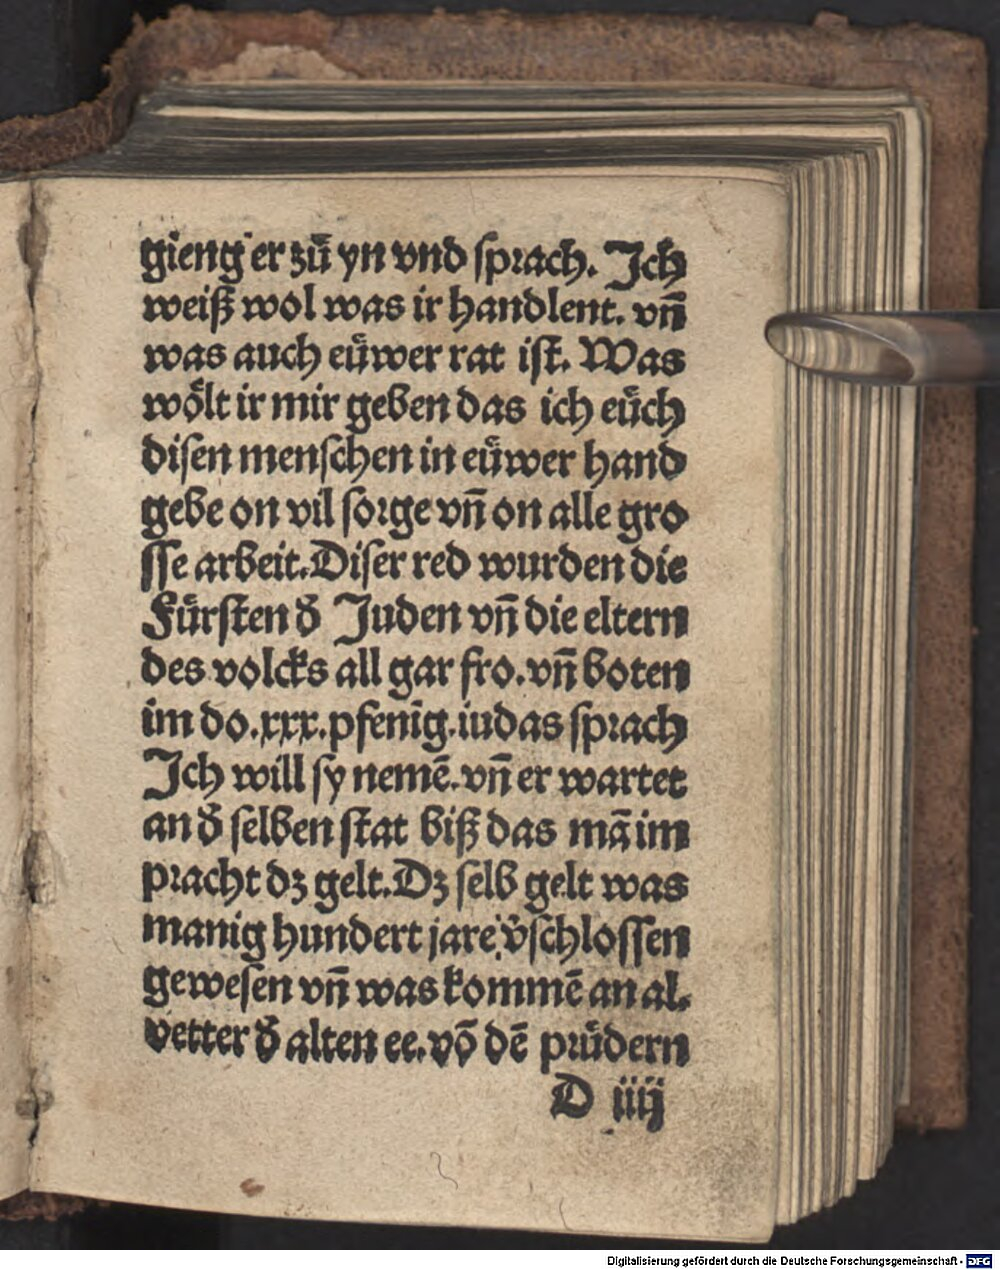 gieng er zů yn vnd sprach. Ich
weiß wol was ir handlent. vñ
was auch eüwer rat ist. Was
wölt ir mir geben das ich eüch
disen menschen in eüwer hand
gebe on vil sorge vñ on alle gro
sse arbeit. Diser red wurden die
Fürsten ď Juden vñ die eltern
des volcks all gar fro. vñ boten
im do. xxx. pfenig. iudas sprach
Ich will sy nemē. vñ er wartet
an ď selben stat biß das mā im
pracht dz gelt. Dz selb gelt was
manig hundert jare v̉schlossen
gewesen vñ was kommē an al.
vetter ď alten ee. vō dē prüdern
D iiij
Digitalisierung gefördert durch die Deutsche Forschungsgemeinschaft - DFG